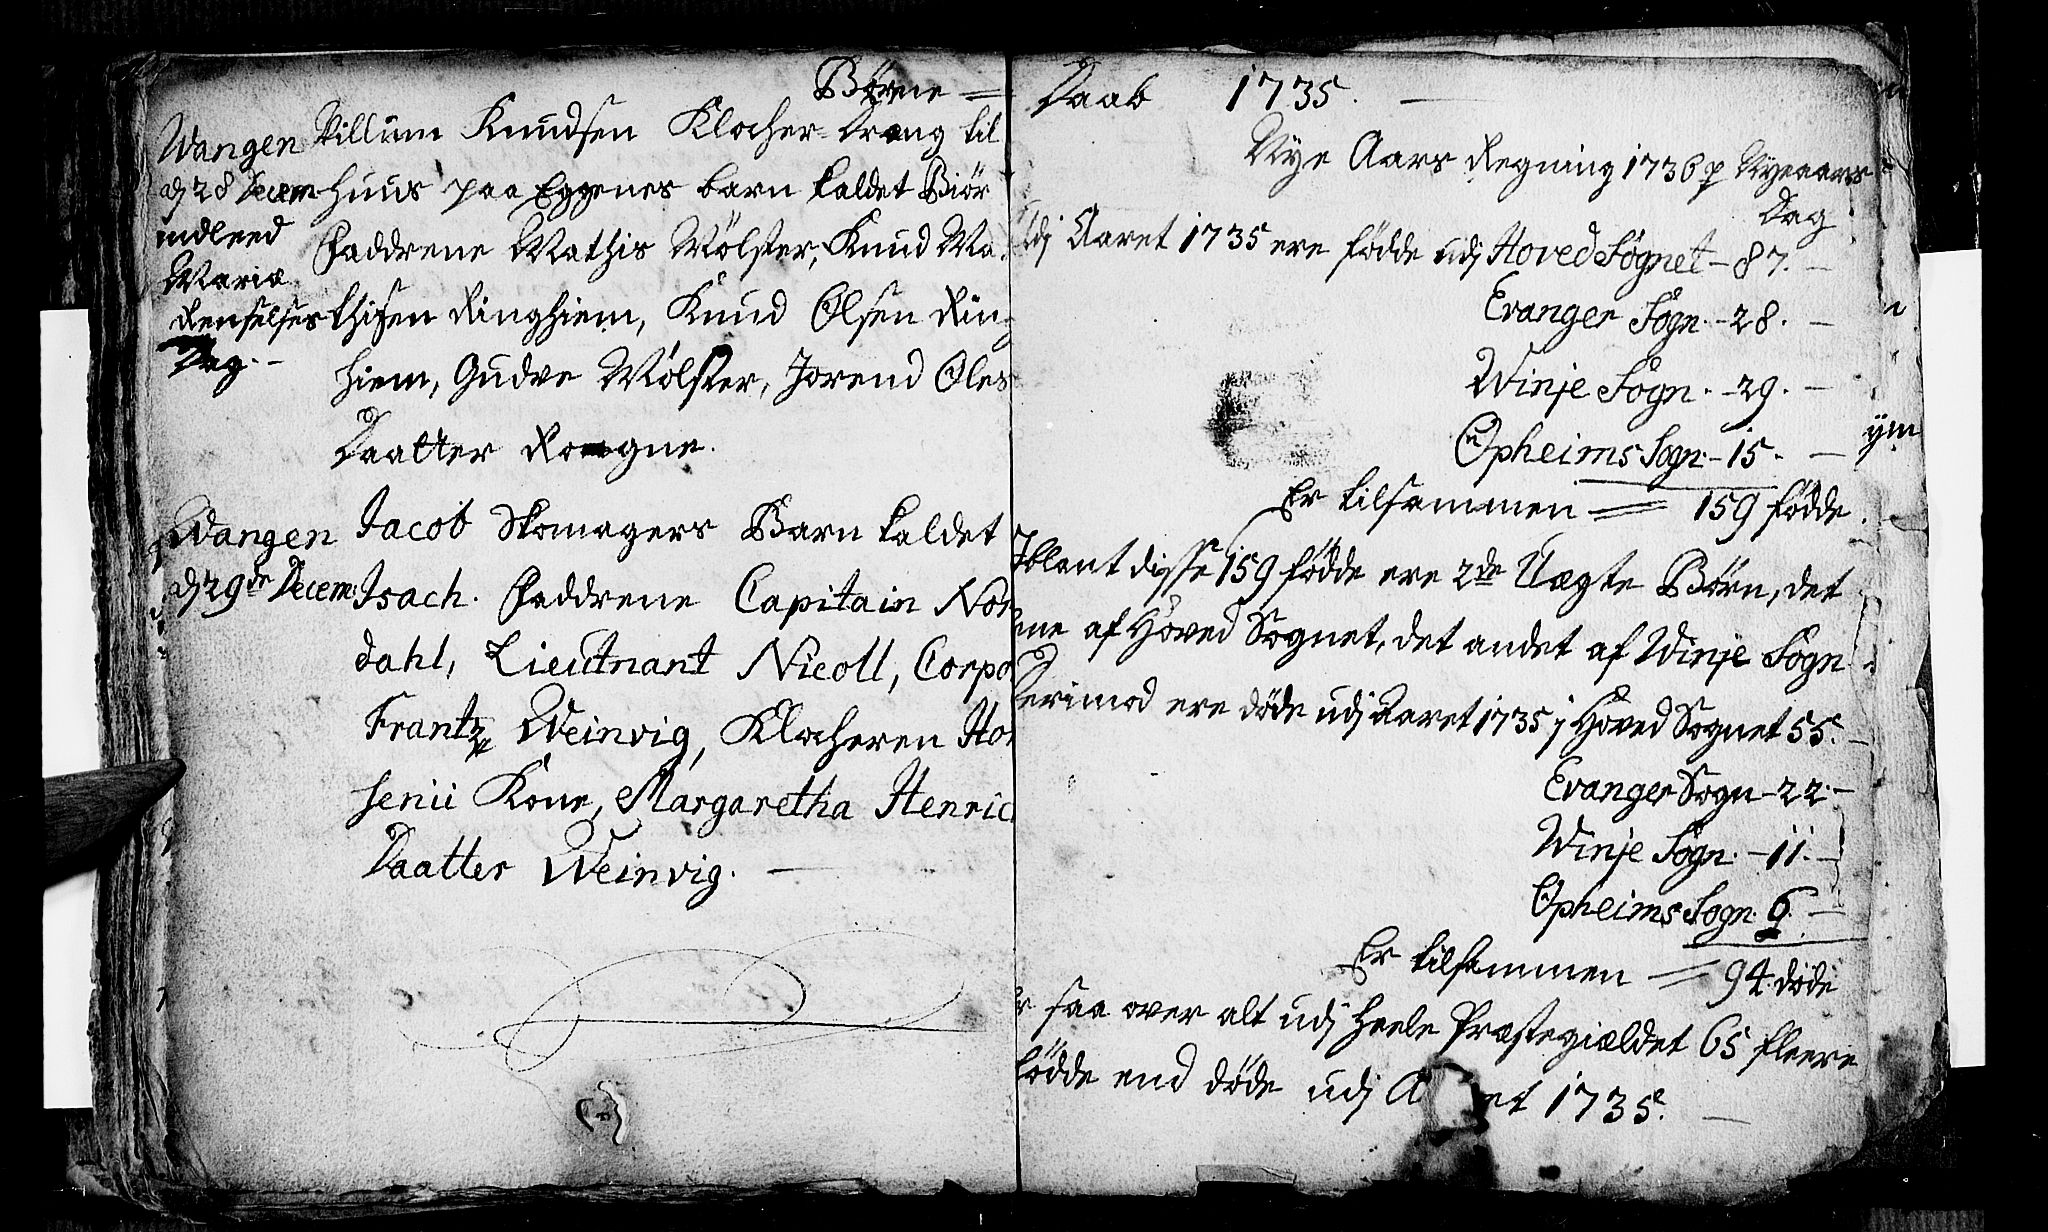 Börne =
Wangen
dj 28 Decem
indleed
Mariæ
Renselses
Dag. -
Villum Knudsen Klocher-Dreng til
Huus paa Eggenes barn kaldet Biör
Faddrene Mathis Mölster, Knud Ma-
thisen Ringhiem, Knud Olsen Rin-
hiem, Gudve Mölster, Jorend Oles
Daatter Rogne.
Wangen
dj 29de Decem:
Jacob Skomagers Barn kaldet
Isach. Faddrene Capitain Nor
dahl, Lieutnant Nicoll, Corpo
Frantz Weinvig, Klocheren
senii Kone, Margaretha Henric
Daatter Weinvig. —
Daab 1735. —
Nye Aars Regning 1736 p Nyeaars
Dag
Udj Aaret 1735 ere födde udj Hoved Sognet - 87. -
Evanger Sogn. - 28. -
Winje Sogn. - 29. -
Opheims Sogn. - 15. -
Er tilsammen = 159 födde.
Iblant disse 159 födde ere 2de Uægte Börn, det
ene af Hoved Sognet, det andet af Winje Sogn
Derimod ere döde udj Aaret 1735 j Hoved Sognet 55. -
Evanger Sogn - 22. -
Winje Sogn. - 11. -
Opheims Sogn. 6. -
Er tilsammen = 94. döde
saa over alt udj heele Præstegiældet 65 fleere
födde end döde udj A et 1735. —
ym